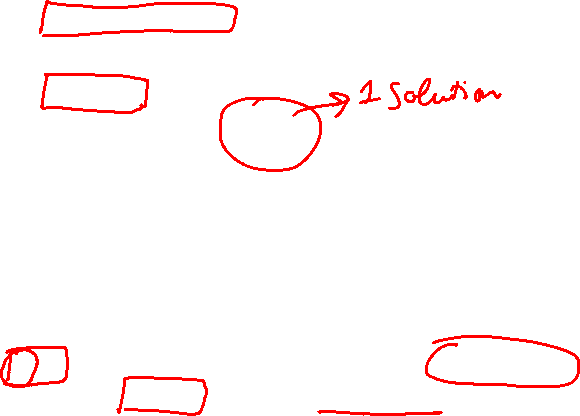 1 Solution